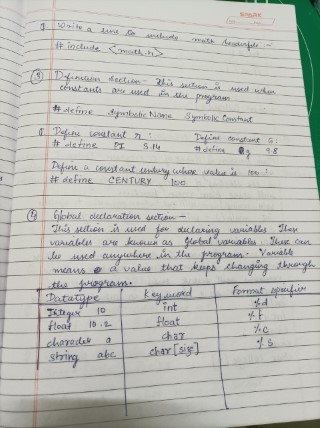 Q Write a line to include math headerfile -
# include <math.h>
③ Definition Section - This section is used when
constants are used in the program
# define Symbolic Name Symbolic Constant
Q. Define constant π : Define constant g :
# define PI 3.14 # define g 9.8
Define a constant century whose value is 100 :
# define CENTURY 100
④ Global declaration section -
This section is used for declaring variables These
variables are known as global variables. These can
be used anywhere in the program. Variable
means a value that keeps changing through
the program.
Datatype Keyword Format specifier
Integer 10 int %d
float 10.2 float %f
character a char %c
string abc char [size] %s